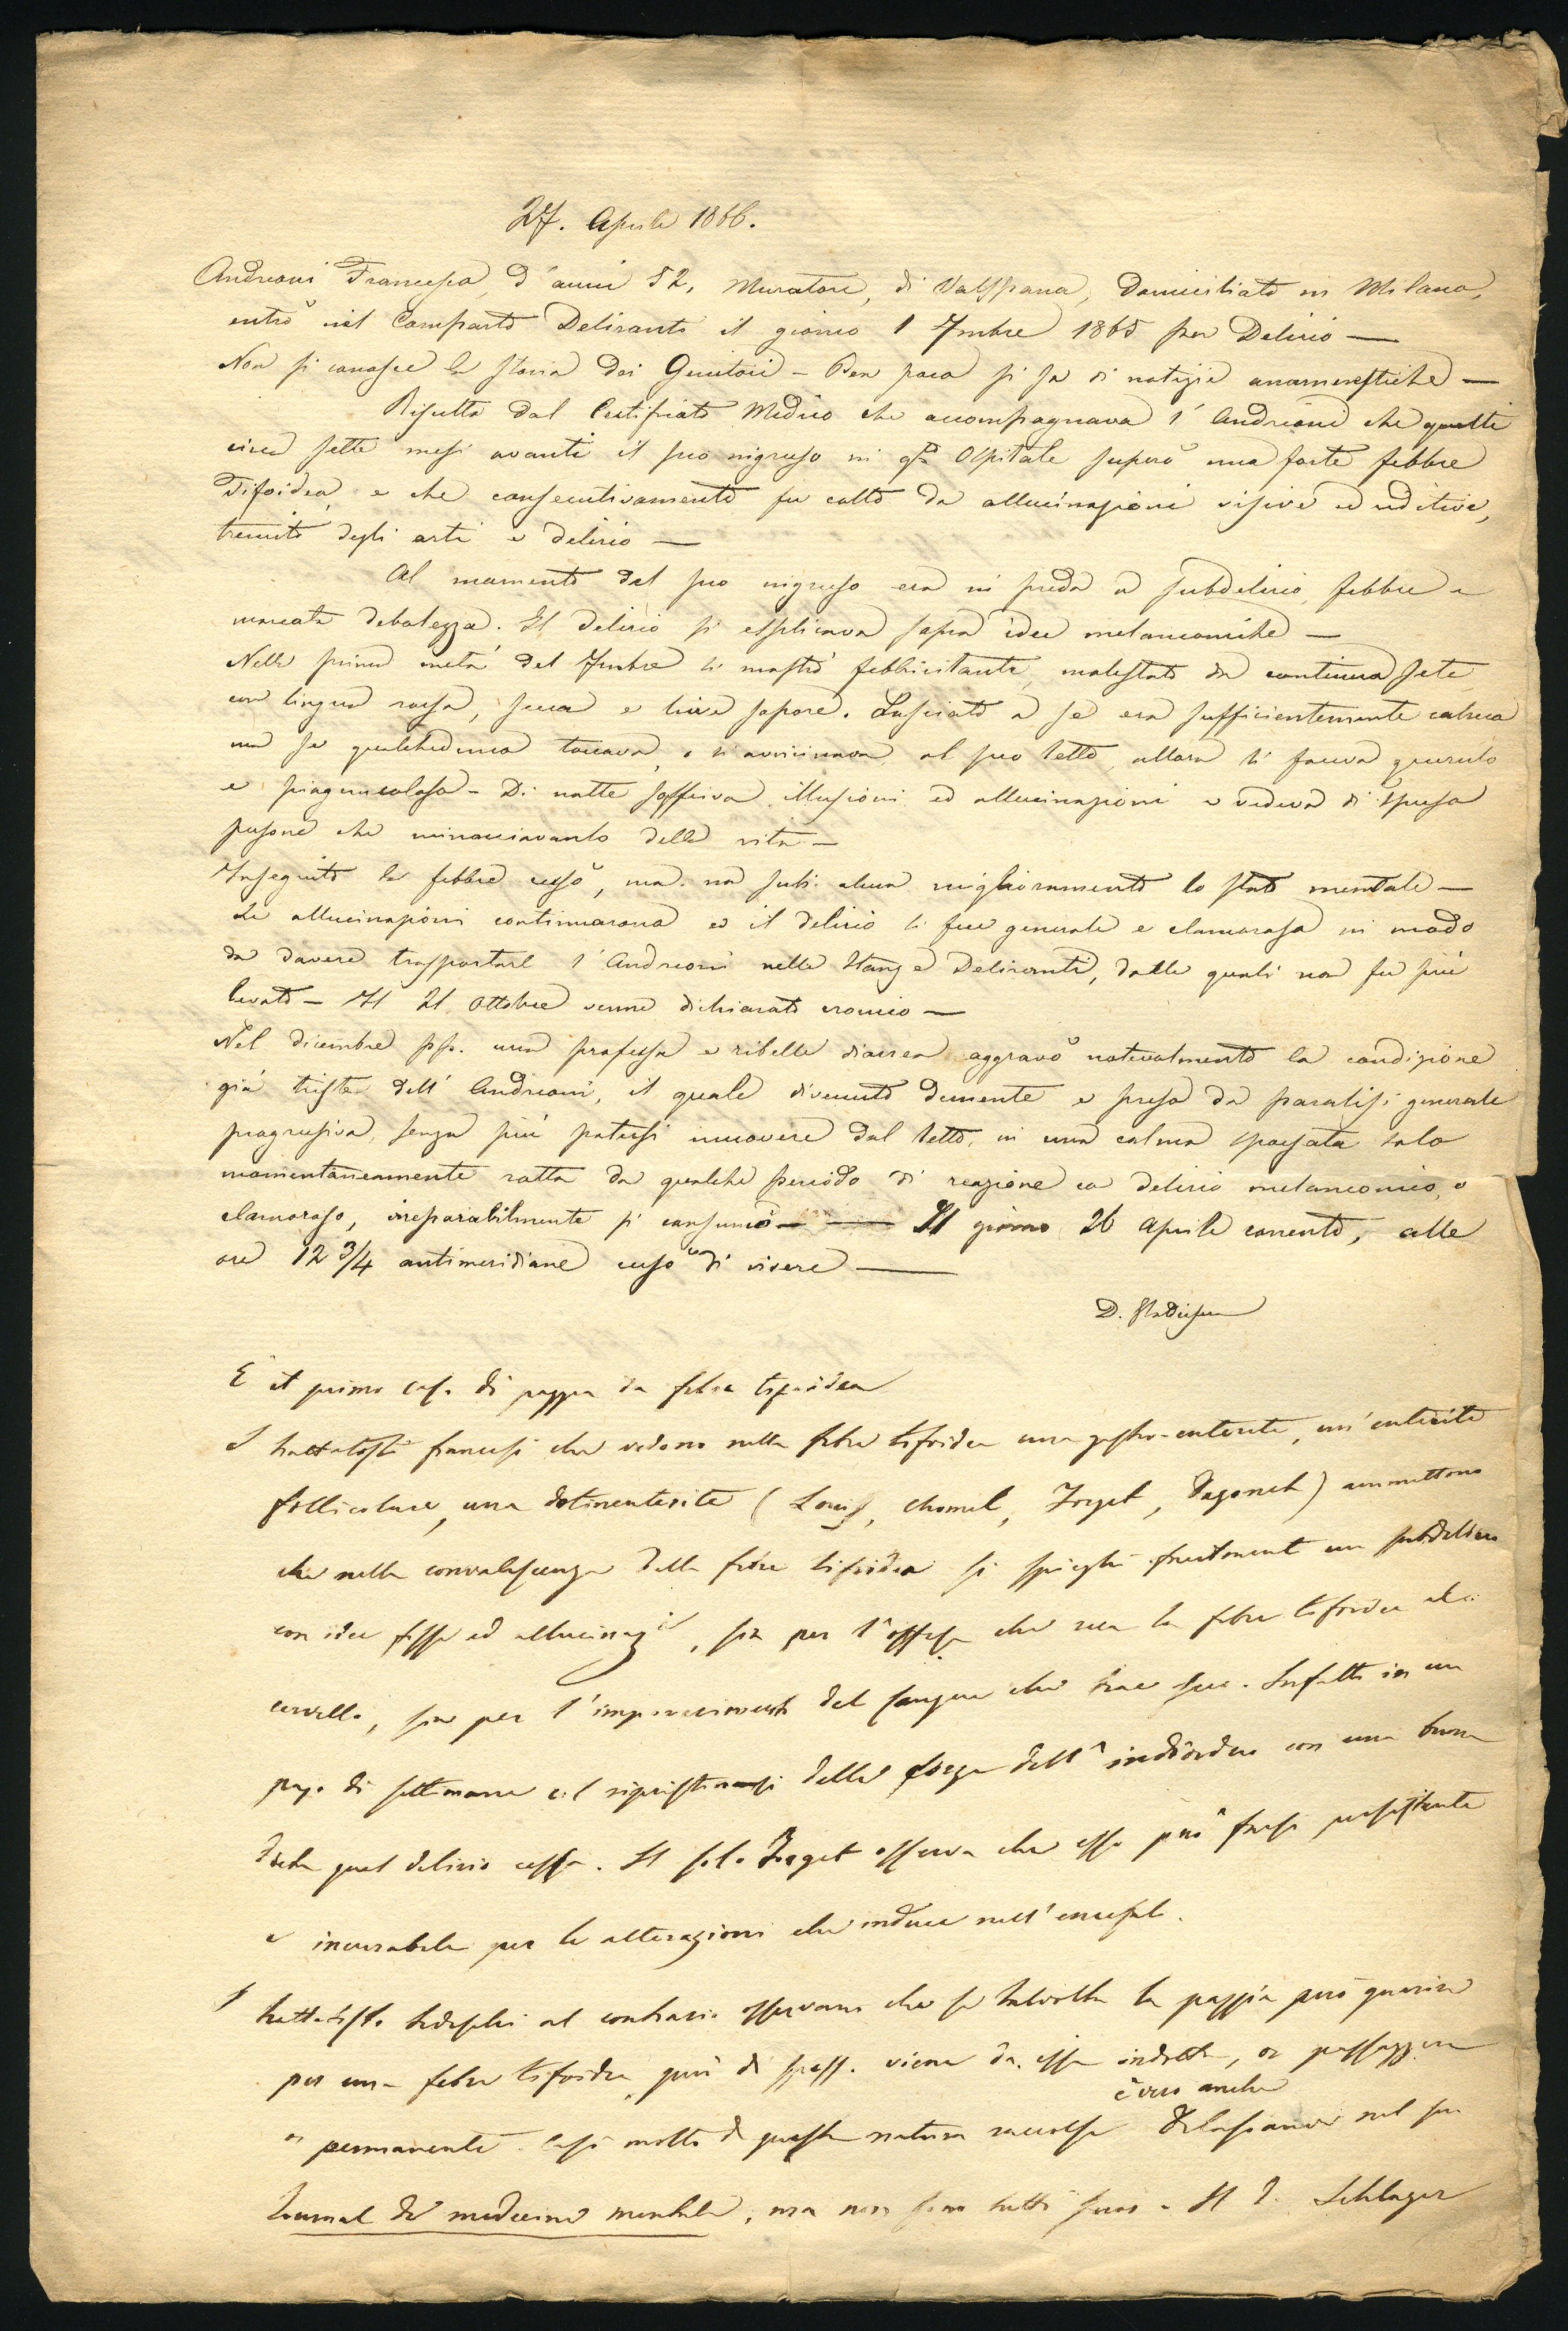 27. Aprile 1866.
Andreoni Francesco, d'anni 52, Muratore, di Domiciliato in Milano,
entrò nel Comparto Deliranti il giorno 1 7mbre 1865 per Delirio —
Non si conosce la storia dei Genitori – Ben poco si sa di notizie anamnestiche —
Risulta dal Certificato Medico che accompagnava l'Andreoni che questi
circa sette mesi avanti il suo ingresso in qto Ospitale superò una forte febbre
Tifoidea, e che consecutivamente fu colto da allucinazioni visive ed uditive,
tremito degli arti e delirio —
Al momento del suo ingresso era in preda a subdelirio, febbre e
marcata debolezza. Il delirio si esplicava sopra idee melanconiche —
Nella prima metà del 7mbre si mostrò febbricitante, molestato da continua sete,
con lingua rossa, secca e live sopore. Lasciato a se era sufficientemente calmo
ma se qualcheduno toccava, o si avvicinava al suo letto, allora si faceva querulo
e piagnucoloso – Di notte soffriva illusioni ed allucinazioni e vedeva di spesso
persone che minacciavanlo della vita —
In seguito la febbre cessò, ma no subì alcun miglioramento lo stato mentale —
Le allucinazioni continuarono ed il delirio si fece generale e clamoroso in modo
da dovere trasportare l'Andreoni nelle Stanze Deliranti, dalle quali non fu più
levato – Il 21 Ottobre venne dichiarato cronico —
Nel dicembre pp. una profusa e ribelle diarrea aggravò notevolmente la condizione
già triste dell'Andreoni, il quale divenuto demente e preso da paralisi generale
progressiva, senza più potersi muovere dal letto, in una calma spossata solo
momentaneamente rotta da qualche periodo di reazione co delirio melanconico, o
clamoroso, irreparabilmente si consumò — — Il giorno 26 Aprile corrente, alle
ore 12 3/4 antimeridiane cessò di vivere —
D.
È il primo caso di pazzia da febre tifoidea
I trattatisti francesi che vedono nella febre tifoidea una gastro-enterite, un'enterite
follicolare, una dotinenterite (Louis, Chomel, Forget, Dagonet) ammettono
che nella convalescenza della febre tifoidea si spieghi facilmente un subdelirio
con idee fisse ed allucinazi, sia per l'offesa che reca la febre tifoidea al
cervello, sia per l'impoverimento del sangue che trae seco. Infatti in un
pajo di settimane col ripristinarsi delle forze dell'individuo con una buona
dieta quel delirio cessa. Il solo Forget osserva che esso può farsi persistente
e incurabile per le alterazioni che induce nell'encefalo.
I trattatisti tedeschi al contrario osservano che se talvolta la pazzia può guarire
per una febre tifoidea, più di spesso viene da essa indotta, or passaggera
è vero anche
or permanente. Casi molti di questa natura raccolse Delasiauve nel suo
Journal de medecine mentale, ma non sono tutti suoi. Il D. Schlager